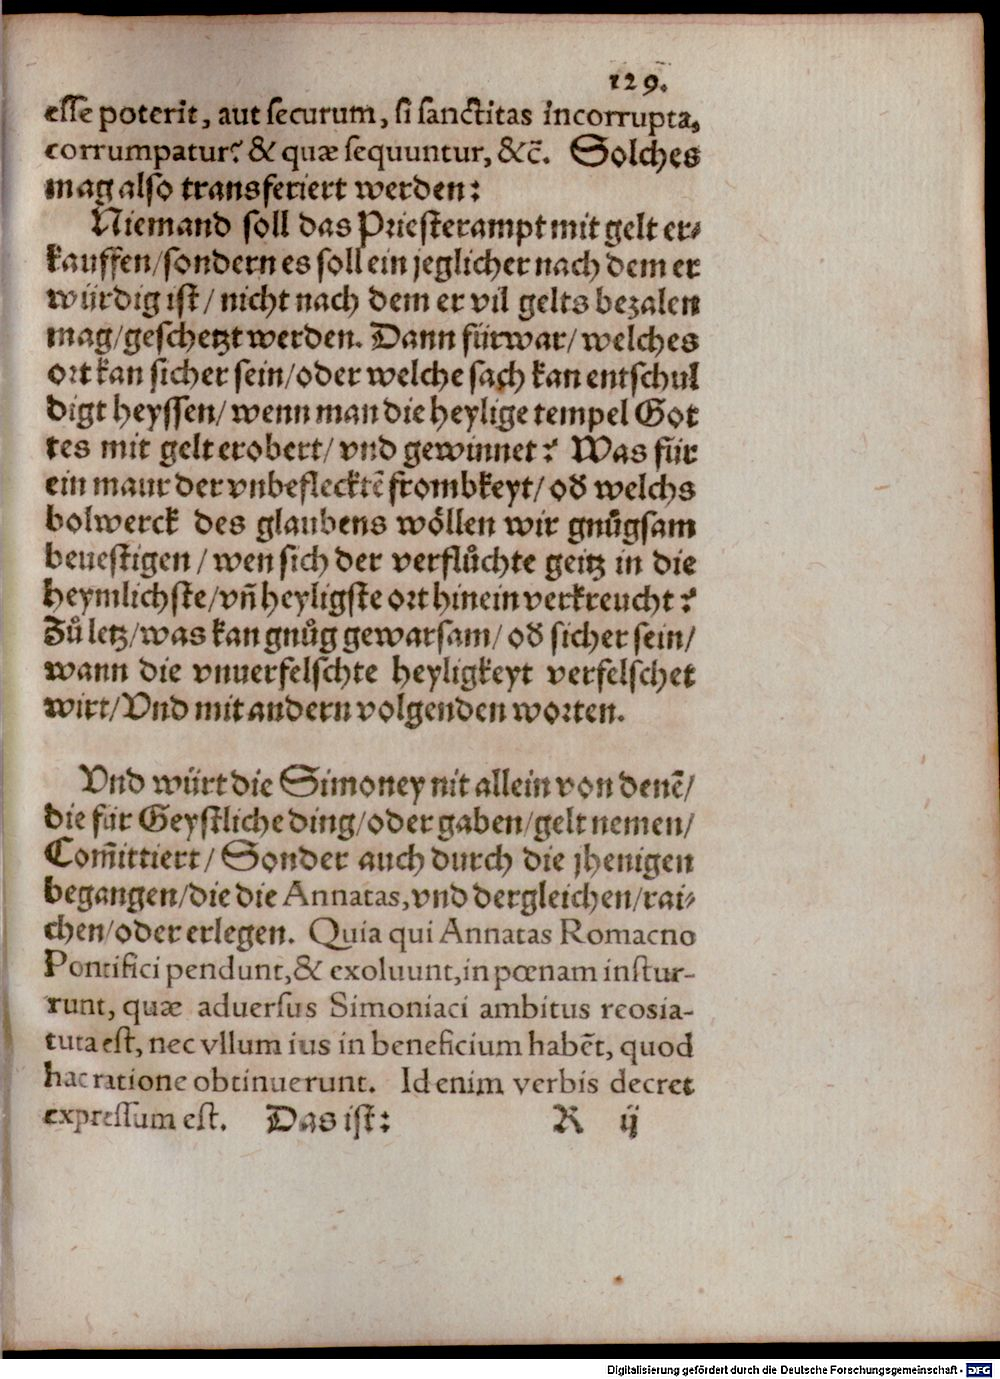 129.
esse poterit, aut securum, si sanctitas incorrupta,
corrumpatur? & quæ sequuntur, &c̄. Solches
mag also transferiert werden:
Niemand soll das Priesterampt mit gelt er⸗
kauffen/sondern es soll ein jeglicher nach dem er
würdig ist/ nicht nach dem er vil gelts bezalen
mag/geschetzt werden. Dann fürwar/ welches
ort kan sicher sein/oder welche sach kan entschul
digt heyssen/ wenn man die heylige tempel Got
tes mit gelt erobert/ vnd gewinnet? Was für
ein maur der vnbeflecktē frombkeyt/ od̄ welchs
bolwerck des glaubens wöllen wir gnůgsam
beuestigen / wen sich der verflůchte geitz in die
heymlichste/vñ heyligste ort hinein verkreucht?
Zů letz/was kan gnůg gewarsam/ od̄ sicher sein/
wann die vnuerfelschte heyligkeyt verfelschet
wirt/Vnd mit andern volgenden worten.
Vnd würt die Simoney nit allein von denē/
die für Geystliche ding/oder gaben/gelt nemen/
Com̄ittiert/ Sonder auch durch die jhenigen
begangen/die die Annatas, vnd dergleichen/rai⸗
chen/oder erlegen. Quia qui Annatas Romacno
Pontifici pendunt,& exoluunt,in pœnam instur-
runt, quæ aduersus Simoniaci ambitus reosia-
tuta est, nec vllum ius in beneficium habēt, quod
hac ratione obtinuerunt. Id enim verbis decret
expressum est. Das ist: R ij
Digitalisierung gefördert durch die Deutsche Forschungsgemeinschaft - DFG